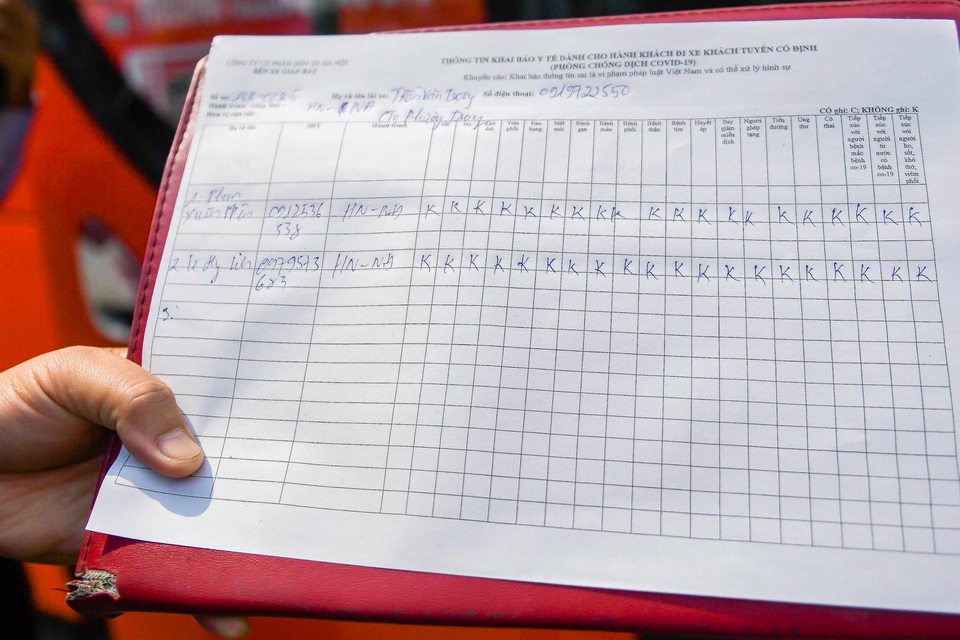 CÔNG TY CỔ PHẦN BẾN XE HÀ NỘI
BẾN XE GIÁP BÁT
THÔNG TIN KHAI BÁO Y TẾ DÀNH CHO HÀNH KHÁCH ĐI XE KHÁCH TUYẾN CỐ ĐỊNH
(PHÒNG CHỐNG DỊCH COVID-19)
Khuyến cáo: Khai báo thông tin sai là vi phạm pháp luật Việt Nam và có thể xử lý hình sự
Số xe: Họ và tên lái xe: Trần Văn Số điện thoại: 0919722550
Hành trình: Giáp Bát - HN-NĐ
Đơn vị vận tải: Cty Phương
CÓ ghi: C; KHÔNG ghi: K
Họ và tên SĐT Hành trình Sốt Ho Khó thở Viêm phổi Đau họng Mệt mỏi Bệnh gan Bệnh máu Bệnh phổi Bệnh thận Bệnh tim Huyết áp Suy giảm miễn dịch Người ghép tạng Tiểu đường Ung thư Có thai Tiếp xúc với người bệnh mắc bệnh co-19 Tiếp xúc với người từ nước có bệnh co-19 Tiếp xúc với người ho, sốt, khó thở, viêm phổi
1. Phan
0912536 HN-NĐ K K K K K K K K K K K K K K K K K K K K
338
2. 0979573 HN-NĐ K K K K K K K K K K K K K K K K K K K K
683
3.